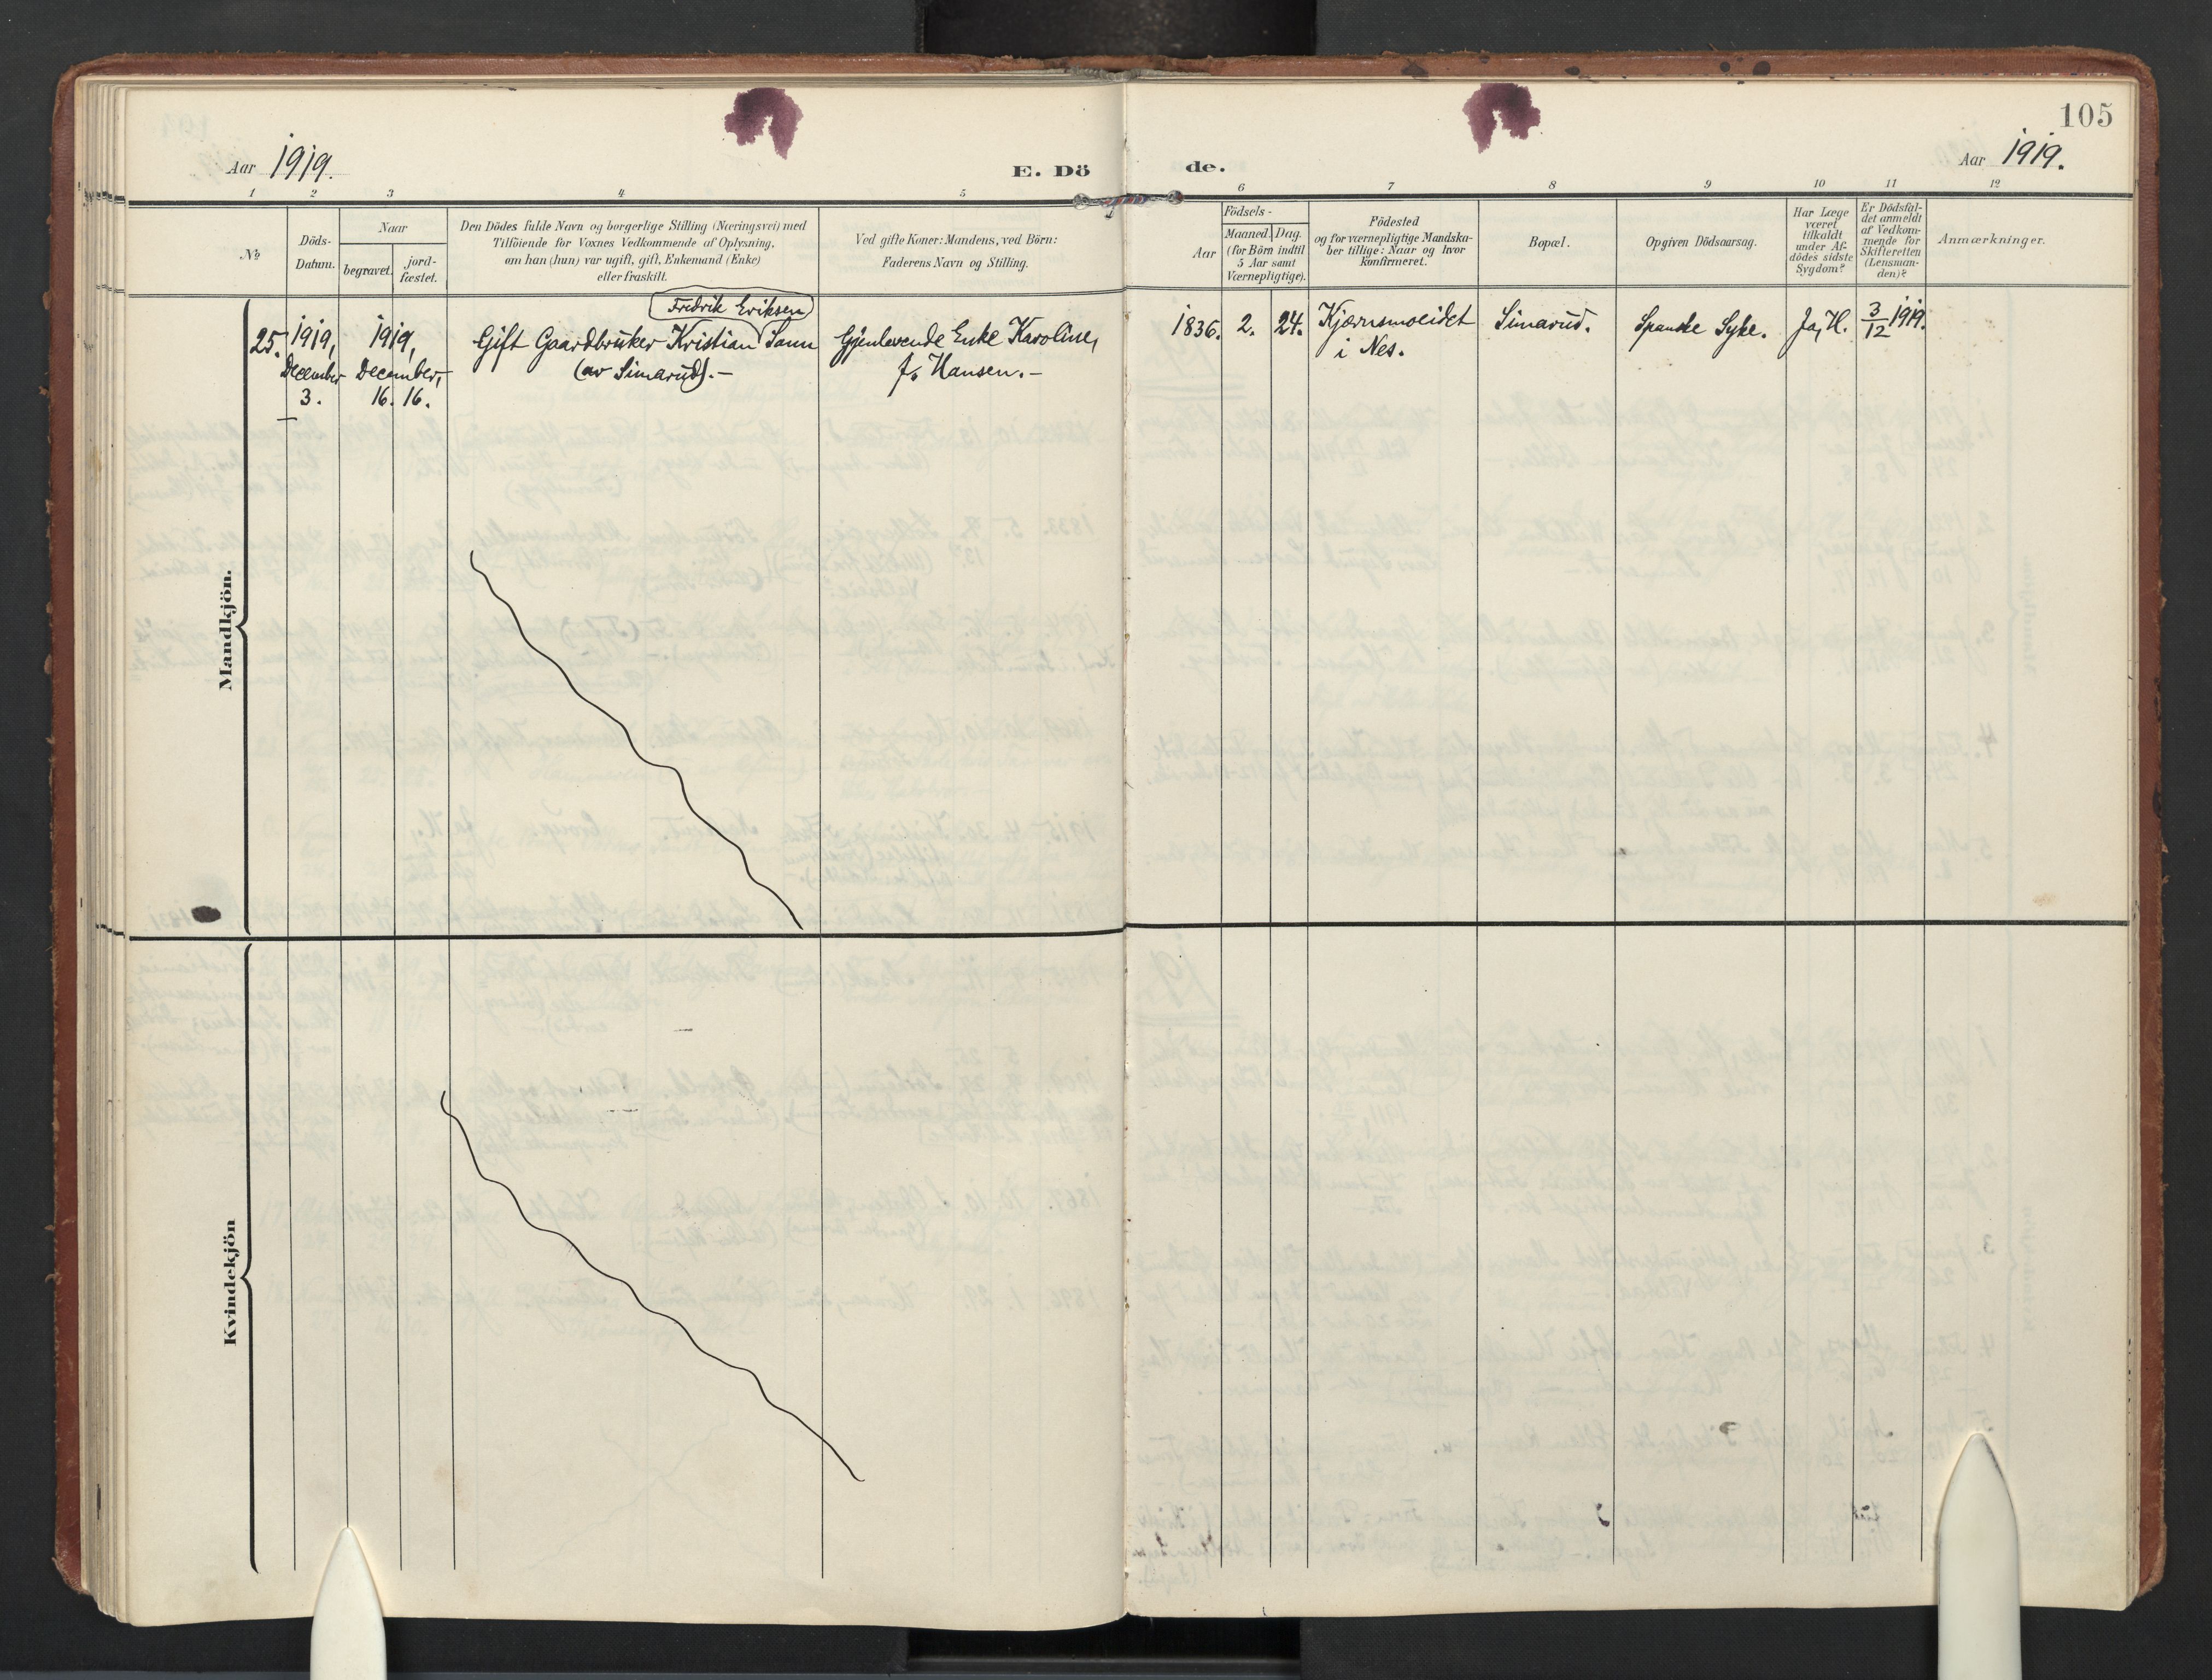 105
Aar 1919.
E. Dö
de.
Aar 1919.
1
2
3
4
5
6
7
8
9
10
11
12
№
Döds-
Datum.
Naar
begravet.
jord-
fæstet.
Den Dödes fulde Navn og borgerlige Stilling (Næringsvei) med
Tilföiende for Voxnes Vedkommende af Oplysning,
om han (hun) var ugift, gift, Enkemand (Enke)
eller fraskilt.
Ved gifte Koner: Mandens, ved Börn:
Faderens Navn og Stilling.
Födsels-
Aar
Maaned.
Dag.
(for Börn indtil
5 Aar samt
Værnepligtige).
Födested
og for værnepligtige Mandska-
ber tillige: Naar og hvor
konfirmeret.
Bopæl.
Opgiven Dödsaarsag.
Har Læge
været
tilkaldt
under Af-
dödes sidste
Sygdom?
Er Dödsfal-
det anmeldt
af Vedkom-
mende for
Skifteretten
(Lensman-
den)?
Anmærkninger.
Mandkjön.
25.
1919,
December
3.
1919,
December,
16. 16.
Fredrik Eriksen
Gift Gaardbruker Kristian Sann
(av Simarud).-
Gjenlevende Enke Karoline,
f. Hansen.-
1836.
2.
24.
Kjærnsmoeidet
i Nes.
Simarud.
Spanske Syke.
Ja, H.
3/12 1919.
Kvindekjön